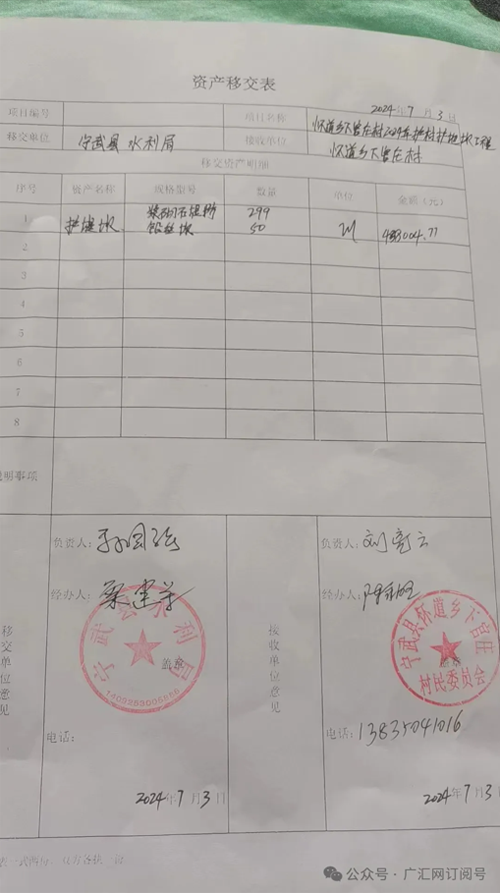 资产移交表
2024年7月3日
项目编号 项目名称 怀道乡下官庄村2024年护村护地坝工程
移交单位 宁武县水利局 接收单位 怀道乡下官庄村
移交资产明细
序号 资产名称 规格型号 数量 单位 金额（元）
1 浆砌石堤防 299
护堤坝 铅丝坝 50 M
2
3
4
5
6
7
8
说明事项
负责人： 负责人：刘
经办人： 梁建 经办人：
移交单位意见
接收单位意见
宁武县水利局
盖章
宁武县怀道乡下官庄
村民委员会
电话： 电话：13835041016
2024年7月3日 2024年7月3日
公众号·广汇网订阅号